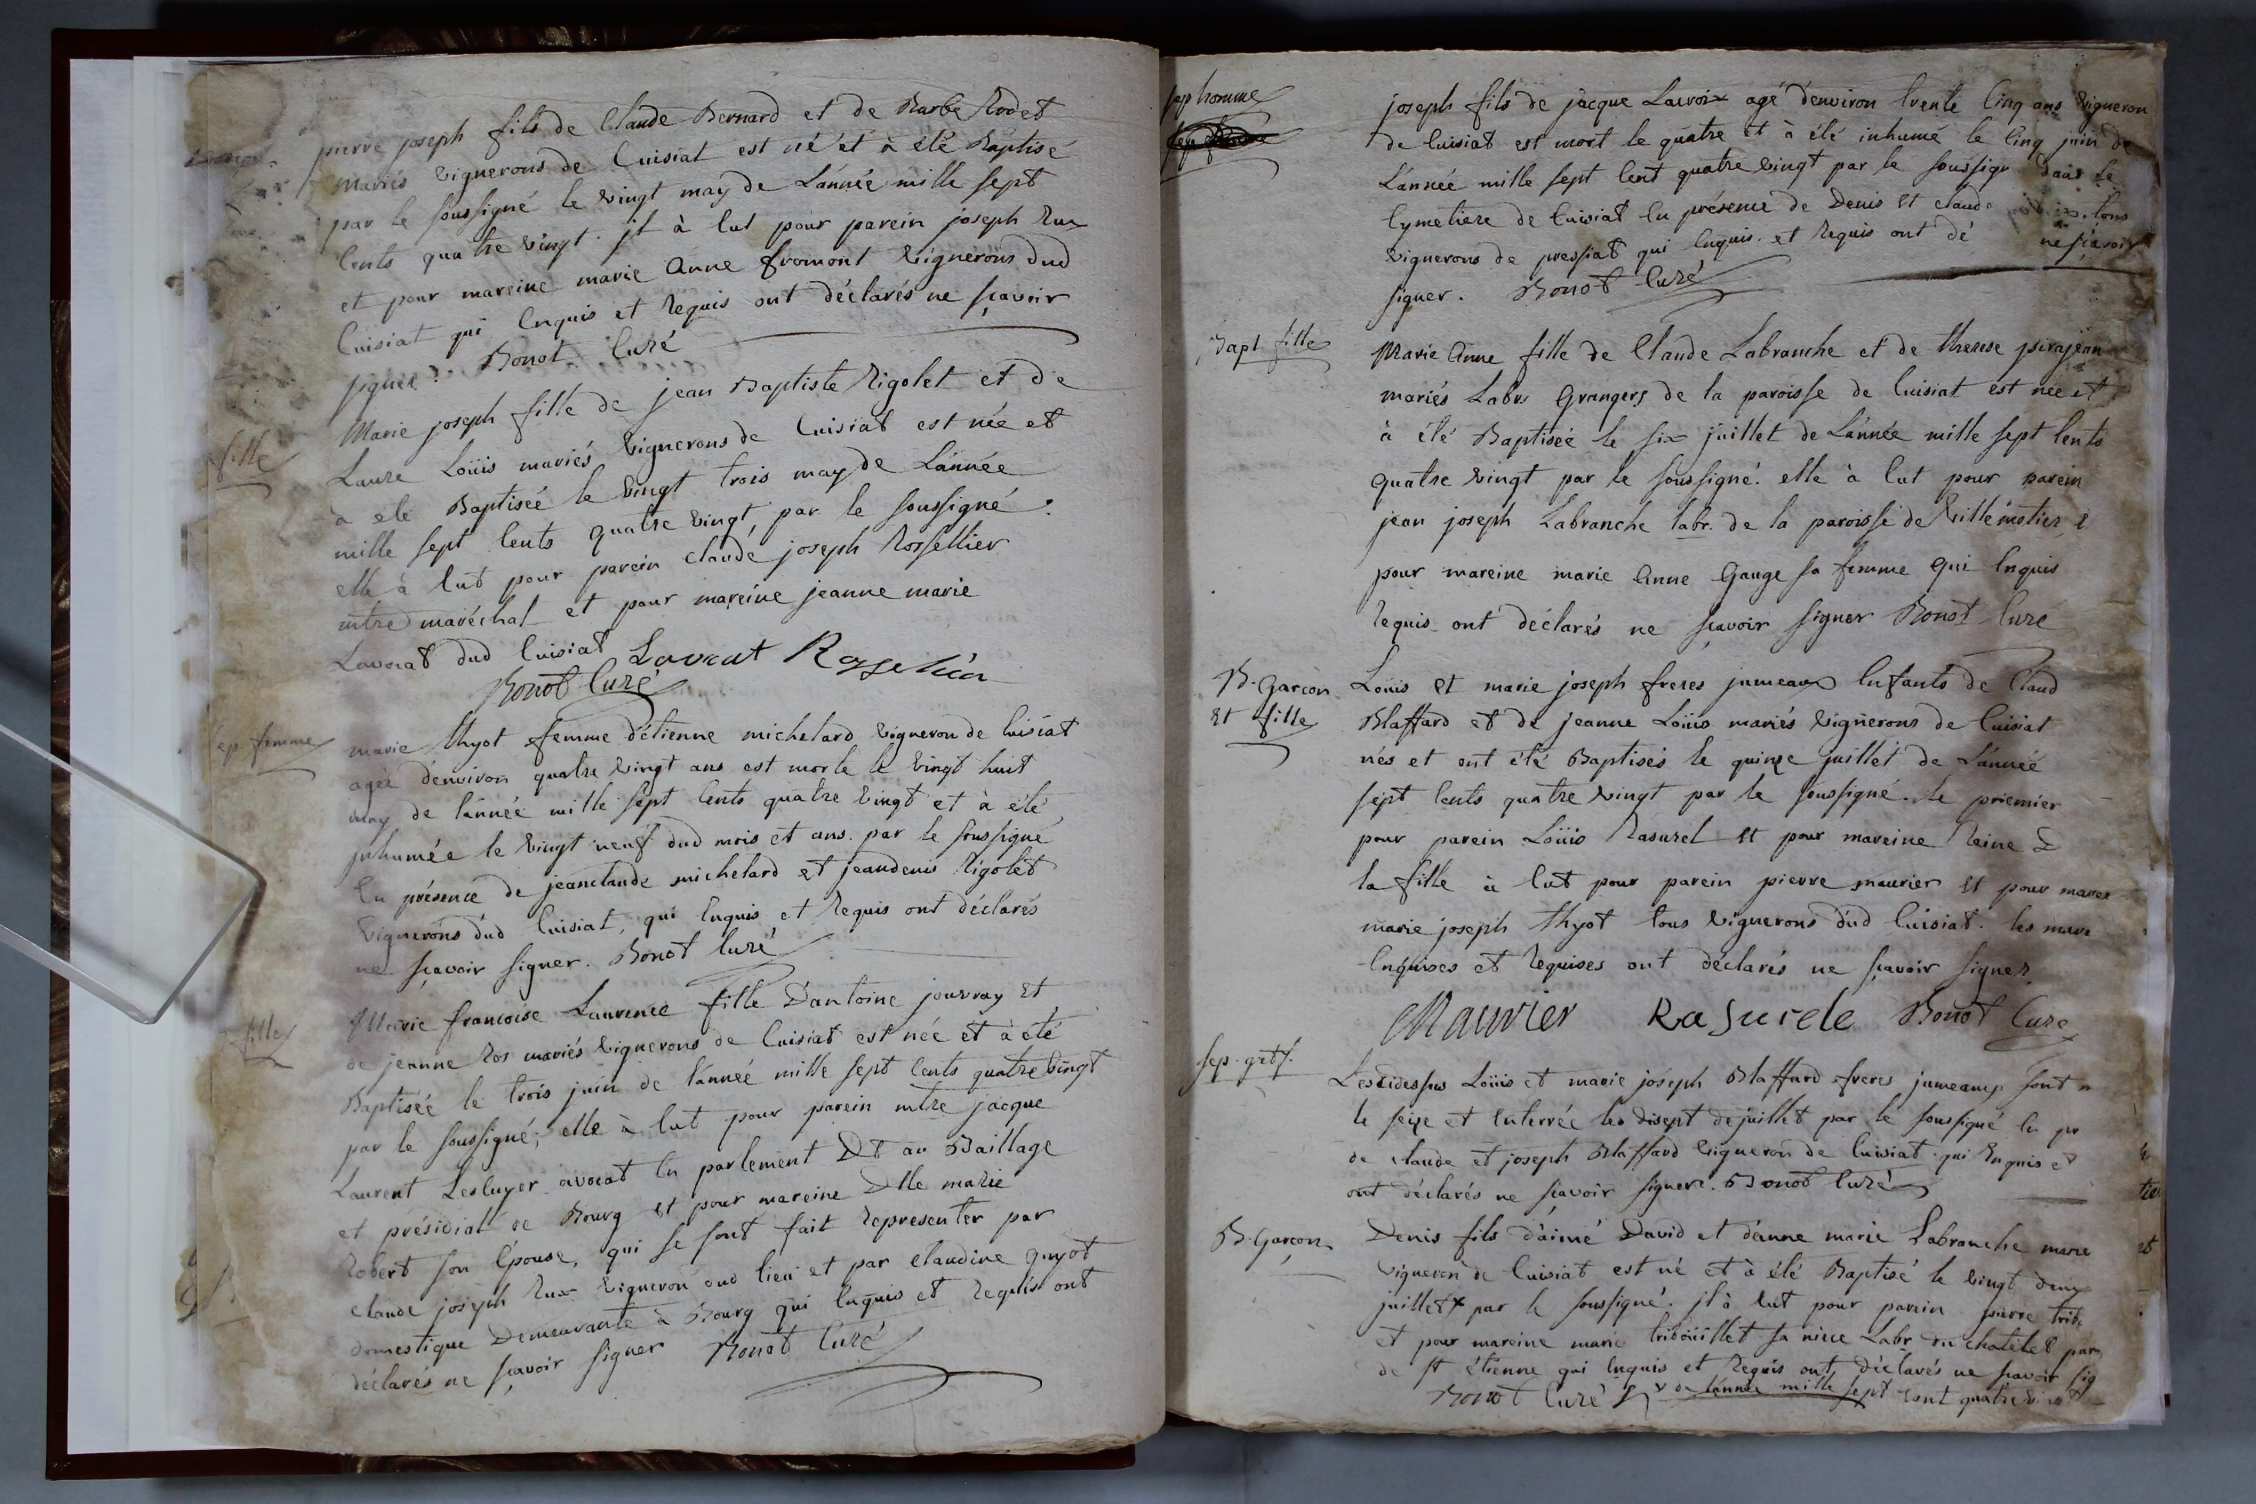 pierre joseph fils de Claude Bernard et de Barbe Rodet
mariés vignerons de Cuisiat est né et à été Baptisé
par le soussigné le vingt may de L'année mille sept
Cents quatre vingt. il à Eut pour parein joseph Rux
et pour mareine marie Anne fromont vignerons dud
Cuisiat qui Enquis et Requis ont déclarés ne sçavoir
signer. Bonot Curé
fille
Marie joseph fille de jean Baptiste Rigolet et de
Laure Loüis mariés vignerons de Cuisiat est née et
à été Baptiseé le vingt trois may de L'année
mille sept Cents quatre vingt, par le soussigné.
elle à Eut pour parein claude joseph Rossellier
mtre maréchal et pour mareine jeanne marie
Lavocat dud Cuisiat Lavocat
Bonot Curé
sep femme
marie thyot femme d'étienne michelard vigneron de Cuisiat
ageé d'environ quatre vingt ans est morte le vingt huit
may de L'année mille sept Cents quatre vingt et à été
inhumée le vingt neuf dud mois et ans par le soussigné
En présence de jeanclaude michelard et jeandenis Rigolet
vignerons dud Cuisiat, qui Enquis et Requis ont déclarés
ne sçavoir signer. Bonot Curé
fille
Marie francoise Laurence fille D'antoine jouvray Et
de jeanne Ros mariés vignerons de Cuisiat est née et à été
Baptiseé le trois juin de L'anneé mille sept Cents quatre vingt
par le soussigné; elle à Eut pour parein mtre jacque
Laurent Lescuyer avocat En parlement Et au Baillage
et présidial de Bourg Et pour mareine Dlle marie
Robert son Epouse, qui se sont fait Representer par
claude joseph Rux vigneron dud lieu et par claudine guyot
domestique Demeurante à Bourg qui Enquis et Requis ont
déclarés ne sçavoir signer Bonot Curé
sep homme
joseph fils de jacque Lacroix agé d'environ trente Cinq ans vigneron
de Cuisiat est mort le quatre Et à été inhumé le Cinq juin de
L'année mille sept Cent quatre vingt par le soussigné dans Le
Cymetiere de Cuisiat En présence de Denis Et claude tous
vignerons de pressiat qui Enquis et Requis ont dé ne sçavoir
signer. Bonot Curé
Bapt fille
Marie Anne fille de Claude Labranche et de therese pirajean
mariés Labrs Grangers de la paroisse de Cuisiat est née et
à été Baptiseé le six juillet de L'année mille sept Cents
quatre vingt par le soussigné. elle à Eut pour parein
jean joseph Labranche labr. de la paroisse de Villemotier &
pour mareine marie Anne Gauge sa femme qui Enquis
Requis ont déclarés ne sçavoir signer Bonot Curé
B. Garcon
Et fille
Loüis Et marie joseph freres jumeaux Enfants de Claud
Blaffard et de jeanne Loüis mariés vignerons de Cuisiat
nés et ont été Baptisés le quinze juillet de L'année
sept Cents quatre vingt par le soussigné. le priemier
pour parein Loüis Rasurel Et pour mareine Reine
la fille à Eut pour parein pierre maurier Et pour marei
marie joseph thyot tous vignerons dud Cuisiat. les mare
Enquises et Requises ont déclarés ne sçavoir signer
Maurier Rasurele Bonot Curé
Les Cidessus Loüis et marie joseph Blaffard freres jumeaux sont
le seize et Enterrée les disept de juillet par le soussigné En pr
de claude et joseph Blaffard vigneron de Cuisiat qui Enquis et
ont déclarés ne sçavoir signer. Bonot Curé
B. Garcon
Denis fils d'aimé David et d'anne marie Labranche marie
vigneron de Cuisiat est né et à été Baptisé le vingt deux
juillet x par le soussigné. il à Eut pour parein pierre trib
et pour mareine marie tribouillet sa niece Labr du chatelet par
de st étienne qui Enquis et Requis ont déclarés ne sçavoir sig
Bonot Curé x de L'année mille sept cent quatre vingt